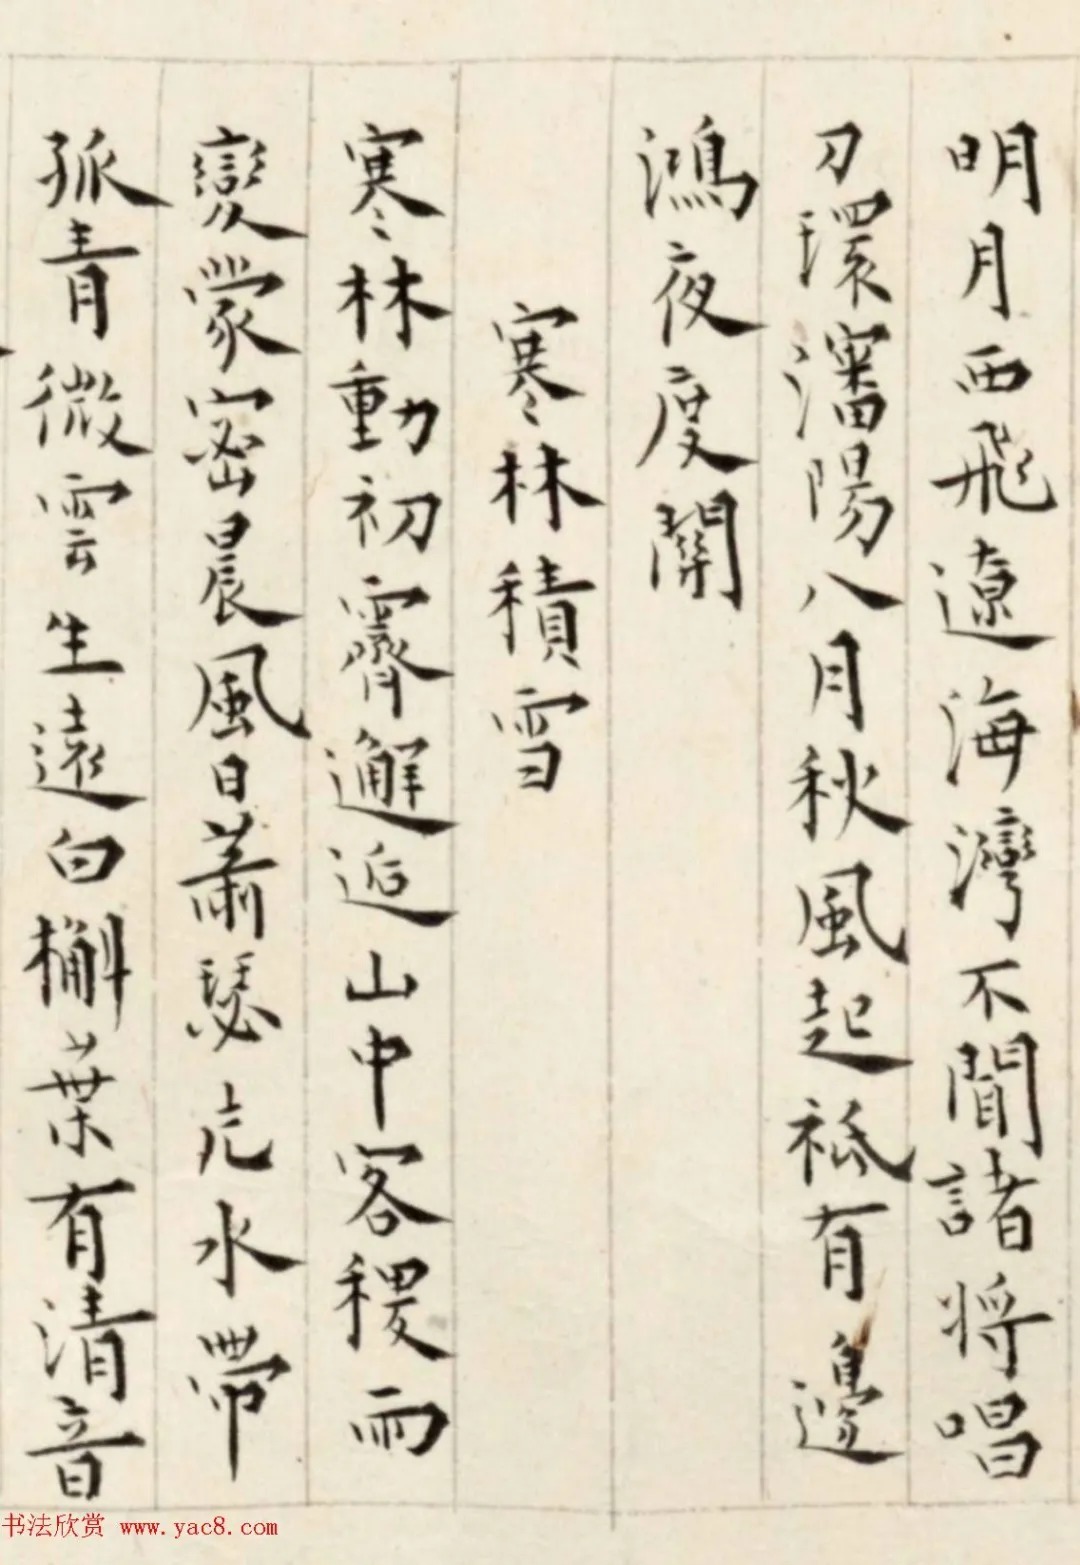 明月西飛遼海灣不聞諸將唱
刀環瀋陽八月秋風起祗有邊
鴻夜度關
寒林積雪
寒林動初霽邂逅山中客稷雨
變蒙密晨風日蕭瑟水帶
孤青微雲生遠白槲葉有清音
书法欣赏 www.yac8.com